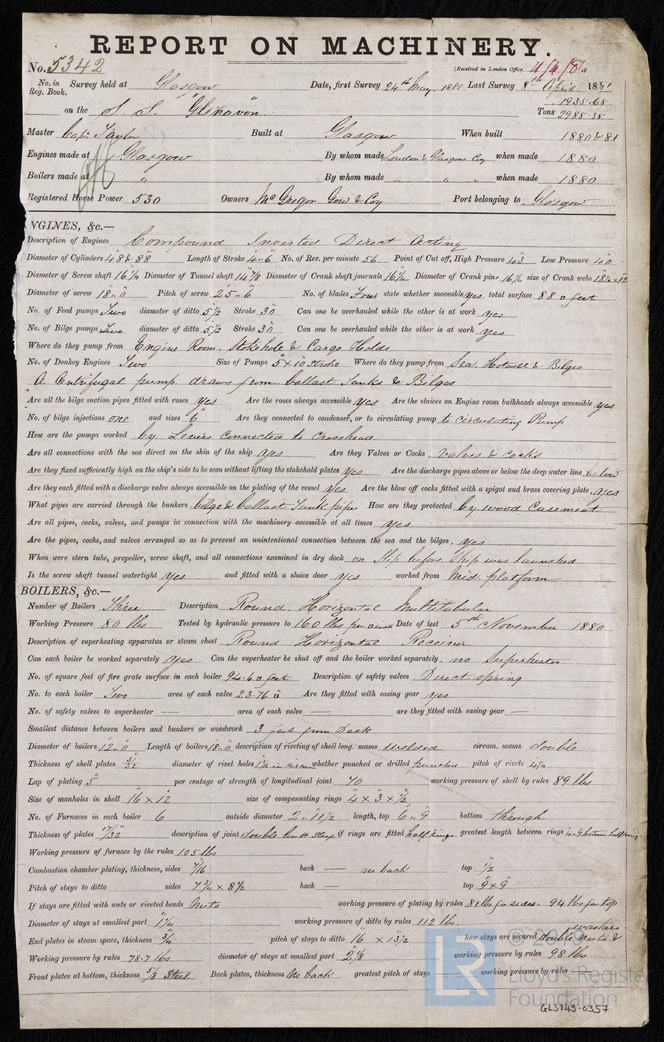 REPORT ON MACHINERY.
No. 5342 (Received in London Office
No. in Reg. Book. Survey held at Glasgow Date, first Survey 24th May, 1880 Last Survey 8th April 1881
on the S. S. "Glenavon" Tons 1935.68 2985.35
Master Capt Taylor Built at Glasgow When built 1880 & 81
Engines made at Glasgow By whom made London & Glasgow Coy when made 1880
Boilers made at " By whom made " " " when made 1880
Registered Horse Power 530 Owners McGregor Gow & Coy Port belonging to Glasgow
ENGINES, &c.—
Description of Engines Compound Inverted Direct Acting
Diameter of Cylinders 48 & 88 Length of Stroke 4-6 No. of Rev. per minute 56 Point of Cut off, High Pressure 43 Low Pressure 40
Diameter of Screw shaft 16 1/4 Diameter of Tunnel shaft 14 7/8 Diameter of Crank shaft journals Diameter of Crank pins size of Crank webs
Diameter of screw 18-0 Pitch of screw 25-6 No. of blades Four state whether moveable yes total surface 88 feet
No. of Feed pumps Two diameter of ditto 5 1/2 Stroke 30 Can one be overhauled while the other is at work yes
No. of Bilge pumps Two diameter of ditto 5 1/2 Stroke 30 Can one be overhauled while the other is at work yes
Where do they pump from Engine Room. Stokehole & Cargo Holds
No. of Donkey Engines Two Size of Pumps 5 x 10 stroke Where do they pump from Sea. Hotwell & Bilges
A Centrifugal pump draws from ballast tanks & Bilges
Are all the bilge suction pipes fitted with roses yes Are the roses always accessible yes Are the sluices on Engine room bulkheads always accessible yes
No. of bilge injections one and sizes 6" Are they connected to condenser, or to circulating pump to circulating Pump
How are the pumps worked by Levers connected to Crosshead
Are all connections with the sea direct on the skin of the ship yes Are they Valves or Cocks Valves & cocks
Are they fixed sufficiently high on the ship's side to be seen without lifting the stokehold plates yes Are the discharge pipes above or below the deep water line below
Are they each fitted with a discharge valve always accessible on the plating of the vessel yes Are the blow off cocks fitted with a spigot and brass covering plate yes
What pipes are carried through the bunkers bilge & ballast Tank pipe How are they protected by wood casement
Are all pipes, cocks, valves, and pumps in connection with the machinery accessible at all times yes
Are the pipes, cocks, and valves arranged so as to prevent an unintentional connection between the sea and the bilges, yes
When were stern tube, propeller, screw shaft, and all connections examined in dry dock on Slip before Ship was launched
Is the screw shaft tunnel watertight yes and fitted with a sluice door yes worked from Mid platform
BOILERS, &c.—
Number of Boilers Three Description Round Horizontal Multitubular
Working Pressure 80 lbs Tested by hydraulic pressure to 160 lbs Date of test 5th November 1880
Description of superheating apparatus or steam chest Round Horizontal Receiver
Can each boiler be worked separately yes Can the superheater be shut off and the boiler worked separately no Superheater
No. of square feet of fire grate surface in each boiler 94.6 feet Description of safety valves Direct spring
No. to each boiler Two area of each valve 23.76 Are they fitted with easing gear yes
No. of safety valves to superheater — area of each valve — are they fitted with easing gear —
Smallest distance between boilers and bunkers or woodwork 3 feet from Deck
Diameter of boilers 12-0 Length of boilers 18-0 description of riveting of shell long. seams welded circum. seams double
Thickness of shell plates diameter of rivet holes whether punched or drilled punched pitch of rivets
Lap of plating 5 per centage of strength of longitudinal joint 70 working pressure of shell by rules 89 lbs
Size of manholes in shell 16 x 12 size of compensating rings 4 x 3 x 1/2
No. of Furnaces in each boiler 6 outside diameter 2-11 1/2 length, top 6-9 bottom through
Thickness of plates 17/32 description of joint double butt strap if rings are fitted half rings greatest length between rings
Working pressure of furnace by the rules 105 lbs
Combustion chamber plating, thickness, sides 7/16 back — no back top 1/2
Pitch of stays to ditto sides 7 3/4 x 8 1/2 back — top 9 x 9
If stays are fitted with nuts or riveted heads Nuts working pressure of plating by rules 81 lbs for sides. 94 lbs for top
Diameter of stays at smallest part 1 1/4 working pressure of ditto by rules 112 lbs.
End plates in steam space, thickness 3/4 pitch of stays to ditto 16 x 13 1/2 how stays are secured double nuts & washers
Working pressure by rules 78.7 lbs diameter of stays at smallest part 2 1/8 working pressure by rules 98 lbs
Front plates at bottom, thickness 5/8 Steel Back plates, thickness No back greatest pitch of stays — working pressure by rules
LR
Lloyd's Register
Foundation
GLS145-0357